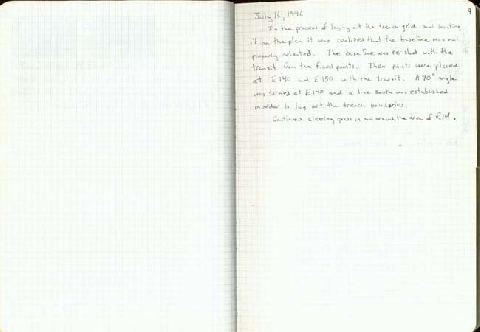 9
1996
In the process of laying out the trench grid and
the plan it was realized that the baseline was not
properly oriented. The baseline was re-shot with the
transit from the fixed points. Then points were placed
at E140 and E150 with the transit. A 90° angle
was turned at E140 and a line South was established
in order to lay out the trench boundaries.
Continued clearing area of